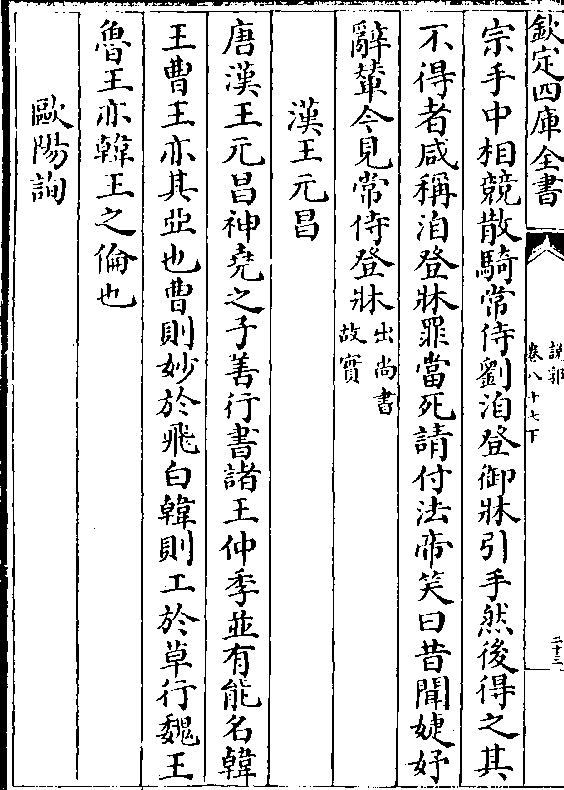 欽定四庫全書
說郛
卷八十七下
二十三
宗手中相競散騎常侍劉洎登御牀引手然後得之其
不得者咸稱洎登牀罪當死請付法帝笑曰昔聞婕妤
辭輦今見常侍登牀出尚書
故實
漢王元昌
唐漢王元昌神堯之子善行書諸王仲季並有能名韓
王曹王亦其亞也曹則妙於飛白韓則工於草行魏王
魯王亦韓王之倫也
歐陽詢